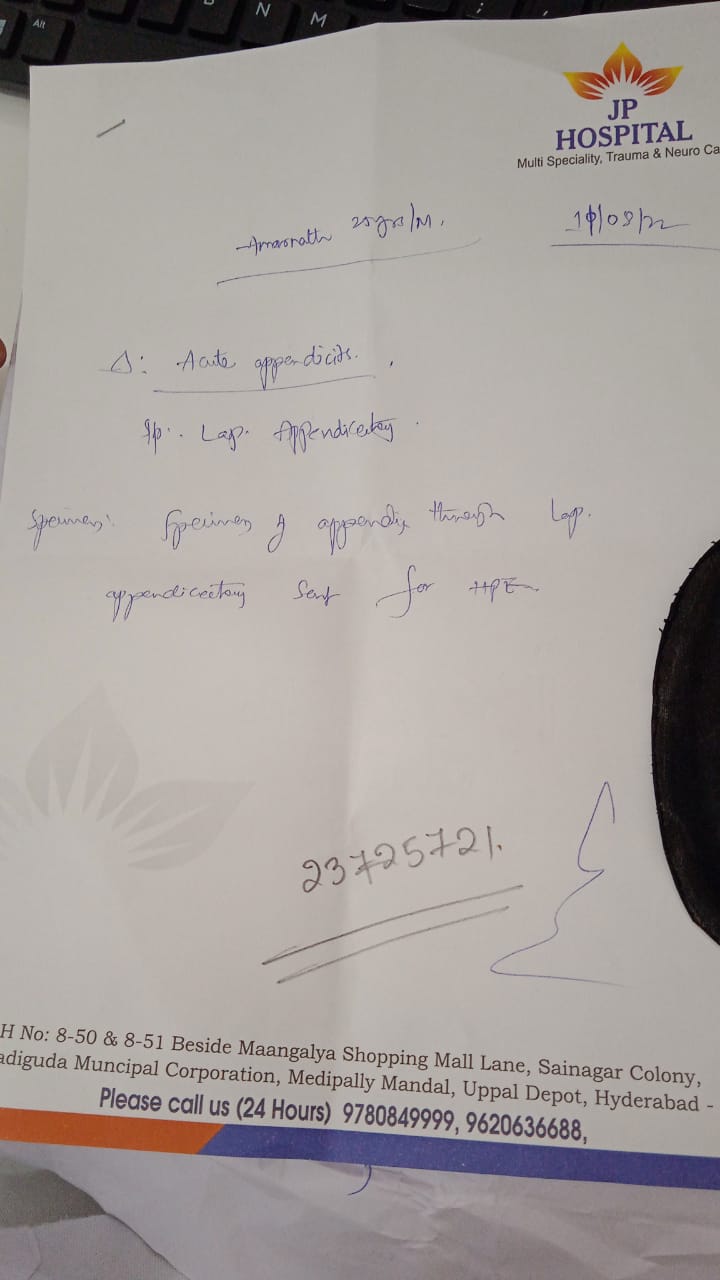 Alt
N
M
JP
HOSPITAL
Multi Speciality, Trauma & Neuro Ca
Amarnath 25yrs/M.
Δ: Acute appendicits.
Lap. Appendicectoy.
Specimen: Specimen of appendix through Lap.
appendicectomy sent for HPE
23725721.
H No: 8-50 & 8-51 Beside Maangalya Shopping Mall Lane, Sainagar Colony,
adiguda Muncipal Corporation, Medipally Mandal, Uppal Depot, Hyderabad -
Please call us (24 Hours) 9780849999, 9620636688,